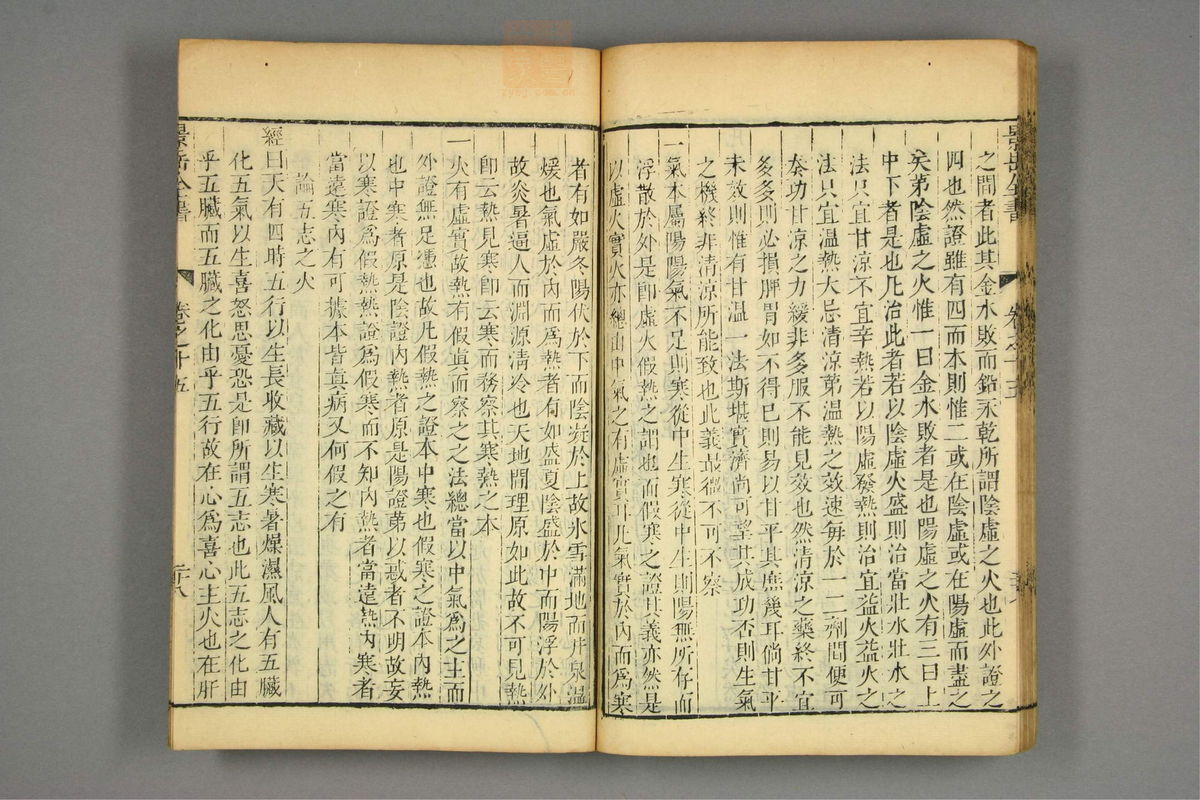 景岳全書
卷之十五
之間者此其金水敗而鉛汞乾所謂陰虛之火也此外證之
四也然證雖有四而本則惟二或在陰虛或在陽虛而盡之
矣第陰虛之火惟一曰金水敗者是也陽虛之火有三曰上
中下者是也凡治此者若以陰虛火盛則治當壯水壯水之
法只宜甘涼不宜辛熱若以陽虛發熱則治宜益火益火之
法只宜温熱大忌清涼第温熱之效速每於一二劑間便可
奏功甘涼之力緩非多服不能見效也然清涼之藥終不宜
多多則必損脾胃如不得已則易以甘平其庶幾耳倘甘平
未效則惟有甘温一法斯堪實濟尚可望其成功否則生氣
之機終非清涼所能致也此義最微不可不察
一氣本屬陽陽氣不足則寒從中生寒從中生則陽無所存而
浮散於外是卽虛火假熱之謂也而假寒之證其義亦然是
以虛火實火亦總由中氣之有虛實耳凡氣實於內而爲寒
者有如嚴冬陽伏於下而陰凝於上故氷雪滿地而井泉温
煖也氣虛於內而爲熱者有如盛夏陰盛於中而陽浮於外
故炎暑逼人而淵源清冷也天地間理原如此故不可見熱
卽云熱見寒卽云寒而務察其寒熱之本
一火有虛實故熱有假眞而察之之法總當以中氣爲之主而
外證無足憑也故凡假熱之證本中寒也假寒之證本內熱
也中寒者原是陰證內熱者原是陽證第以惑者不明故妄
以寒證爲假熱熱證爲假寒而不知內熱者當遠熱內寒者
當遠寒內有可據本皆眞病又何假之有
論五志之火
經曰天有四時五行以生長收藏以生寒暑燥濕風人有五臟
化五氣以生喜怒思憂恐是卽所謂五志也此五志之化由
乎五臟而五臟之化由乎五行故在心爲喜心主火也在肝
景岳全書
卷之十五
二十八